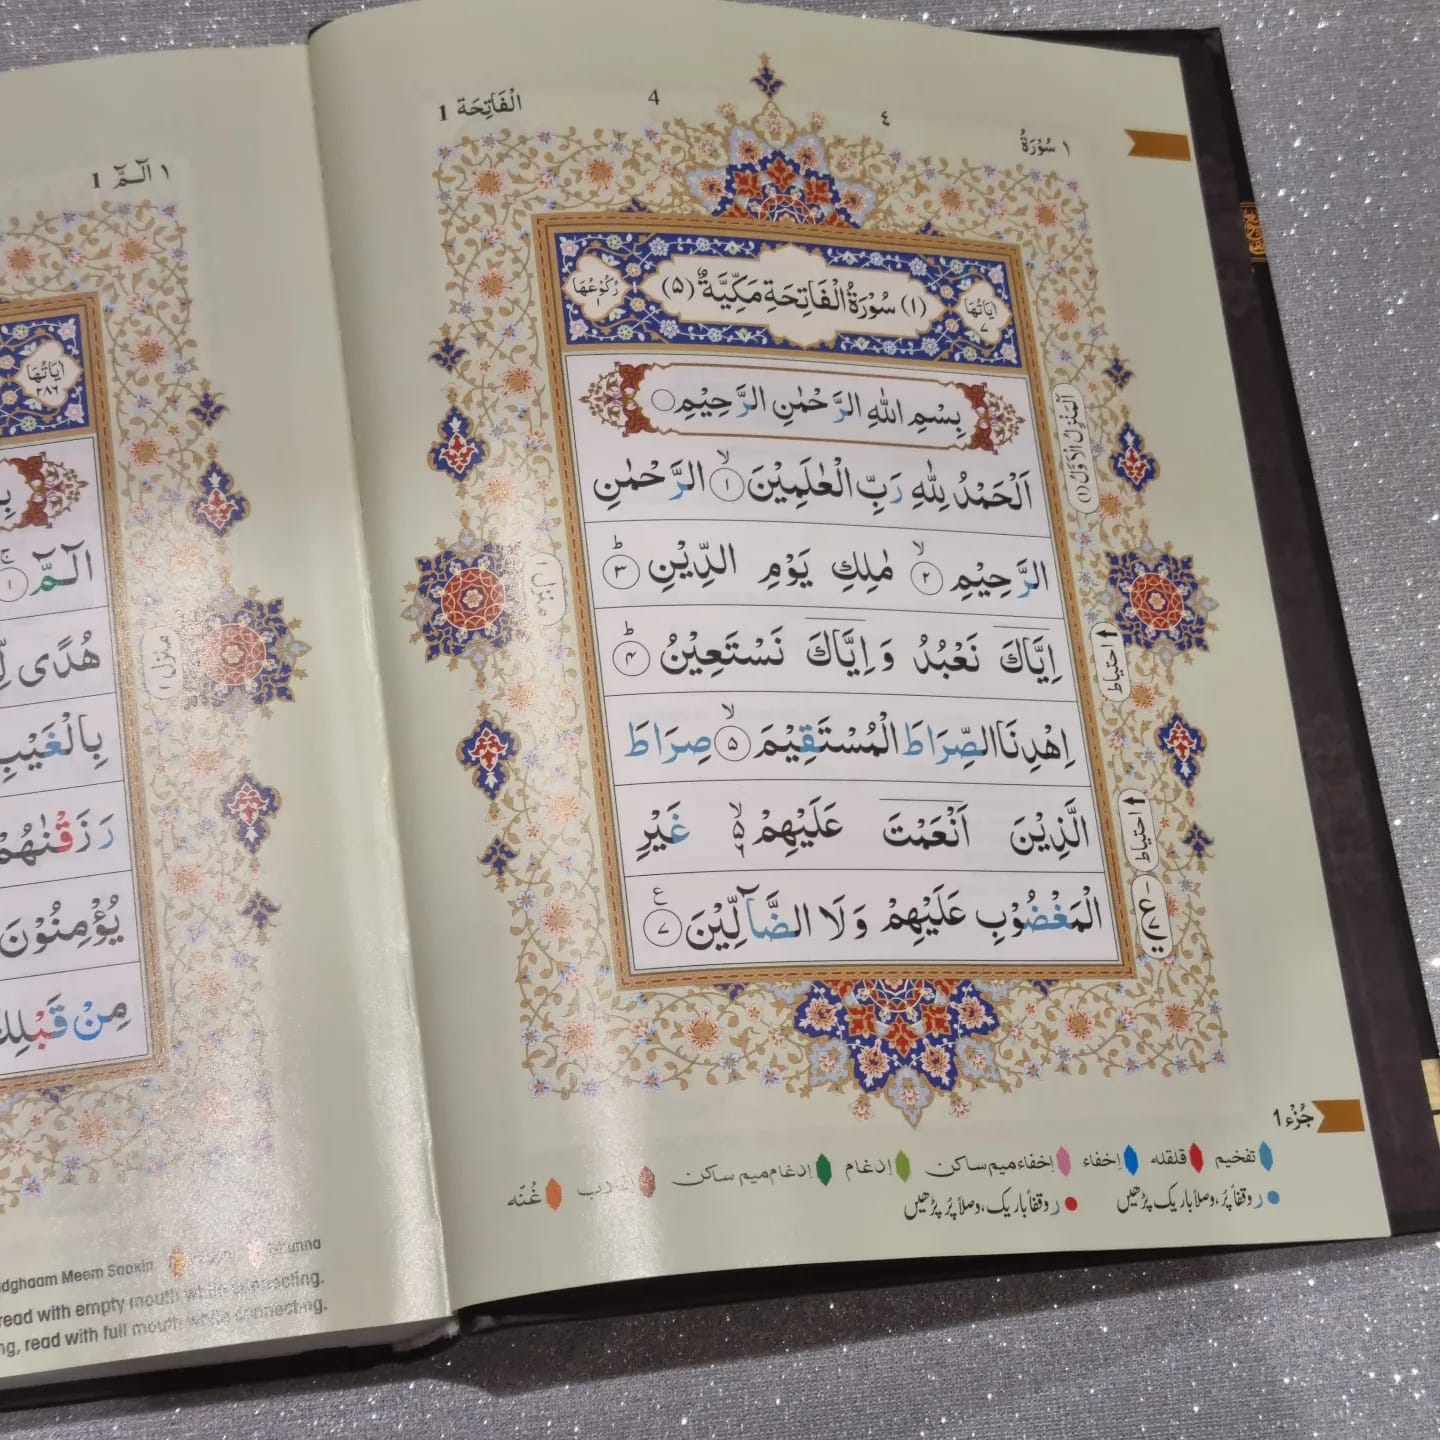 ١ سُوْرَةُ ٤ 4 الْفَاتِحَة 1
اٰيَاتُهَا ٧ (١) سُوْرَةُ الْفَاتِحَةِ مَكِّيَّةٌ (٥) رُكُوْعُهَا ١
بِسْمِ اللّٰهِ الرَّحْمٰنِ الرَّحِيْمِ
اَلْحَمْدُ لِلّٰهِ رَبِّ الْعٰلَمِيْنَ ۙ﴿١﴾ الرَّحْمٰنِ
الرَّحِيْمِ ۙ﴿٢﴾ مٰلِكِ يَوْمِ الدِّيْنِ ؕ﴿٣﴾
اِيَّاكَ نَعْبُدُ وَ اِيَّاكَ نَسْتَعِيْنُ ؕ﴿۴﴾
اِهْدِنَا الصِّرَاطَ الْمُسْتَقِيْمَ ۙ﴿۵﴾ صِرَاطَ
الَّذِيْنَ اَنْعَمْتَ عَلَيْهِمْ ۙ۬۵ غَيْرِ
الْمَغْضُوْبِ عَلَيْهِمْ وَلَا الضَّآلِّيْنَ ﴿٧﴾ ع
اَلْمَنْزِلُ الْاَوَّلُ (١)
احتیاط
احتیاط
منزل ١
جُزْء 1
تفخیم قلقله اِخفاء اِخفاء میم ساکن اِدغام اِدغام میم ساکن غُنّه
ر وقفاً پُر، وصلاً باریک پڑھیں ر وقفاً باریک، وصلاً پُر پڑھیں
١ الٓمّٓ 1
اٰيَاتُهَا ٢٨٦
الٓمّٓ ۚ﴿١﴾
هُدًى
بِالْغَيْبِ
رَزَقْنٰهُمْ
يُؤْمِنُوْنَ
مِنْ قَبْلِكَ
منزل ١
Idghaam Meem Saakin
read with empty mouth while connecting.
read with full mouth while connecting.